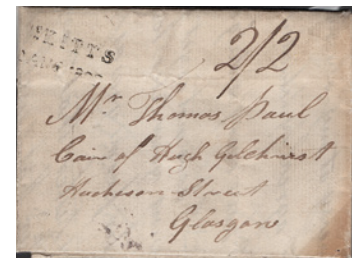 ST KITTS
2/2
Mr Thomas Paul
Care of Hugh Gilchrist
Hucheson Street
Glasgow